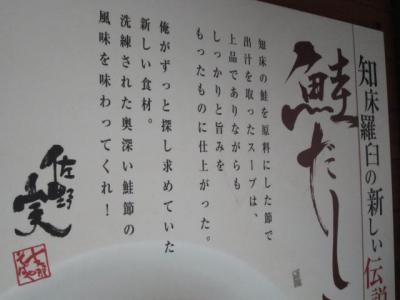 知床羅臼の新しい伝説
鮭だし
知床の鮭を原料にした節で
出汁を取ったスープは、
上品でありながらも
しっかりと旨みを
もったものに仕上がった。
俺がずっと探し求めていた
新しい食材。
洗練された奥深い鮭節の
風味を味わってくれ!
佐野実